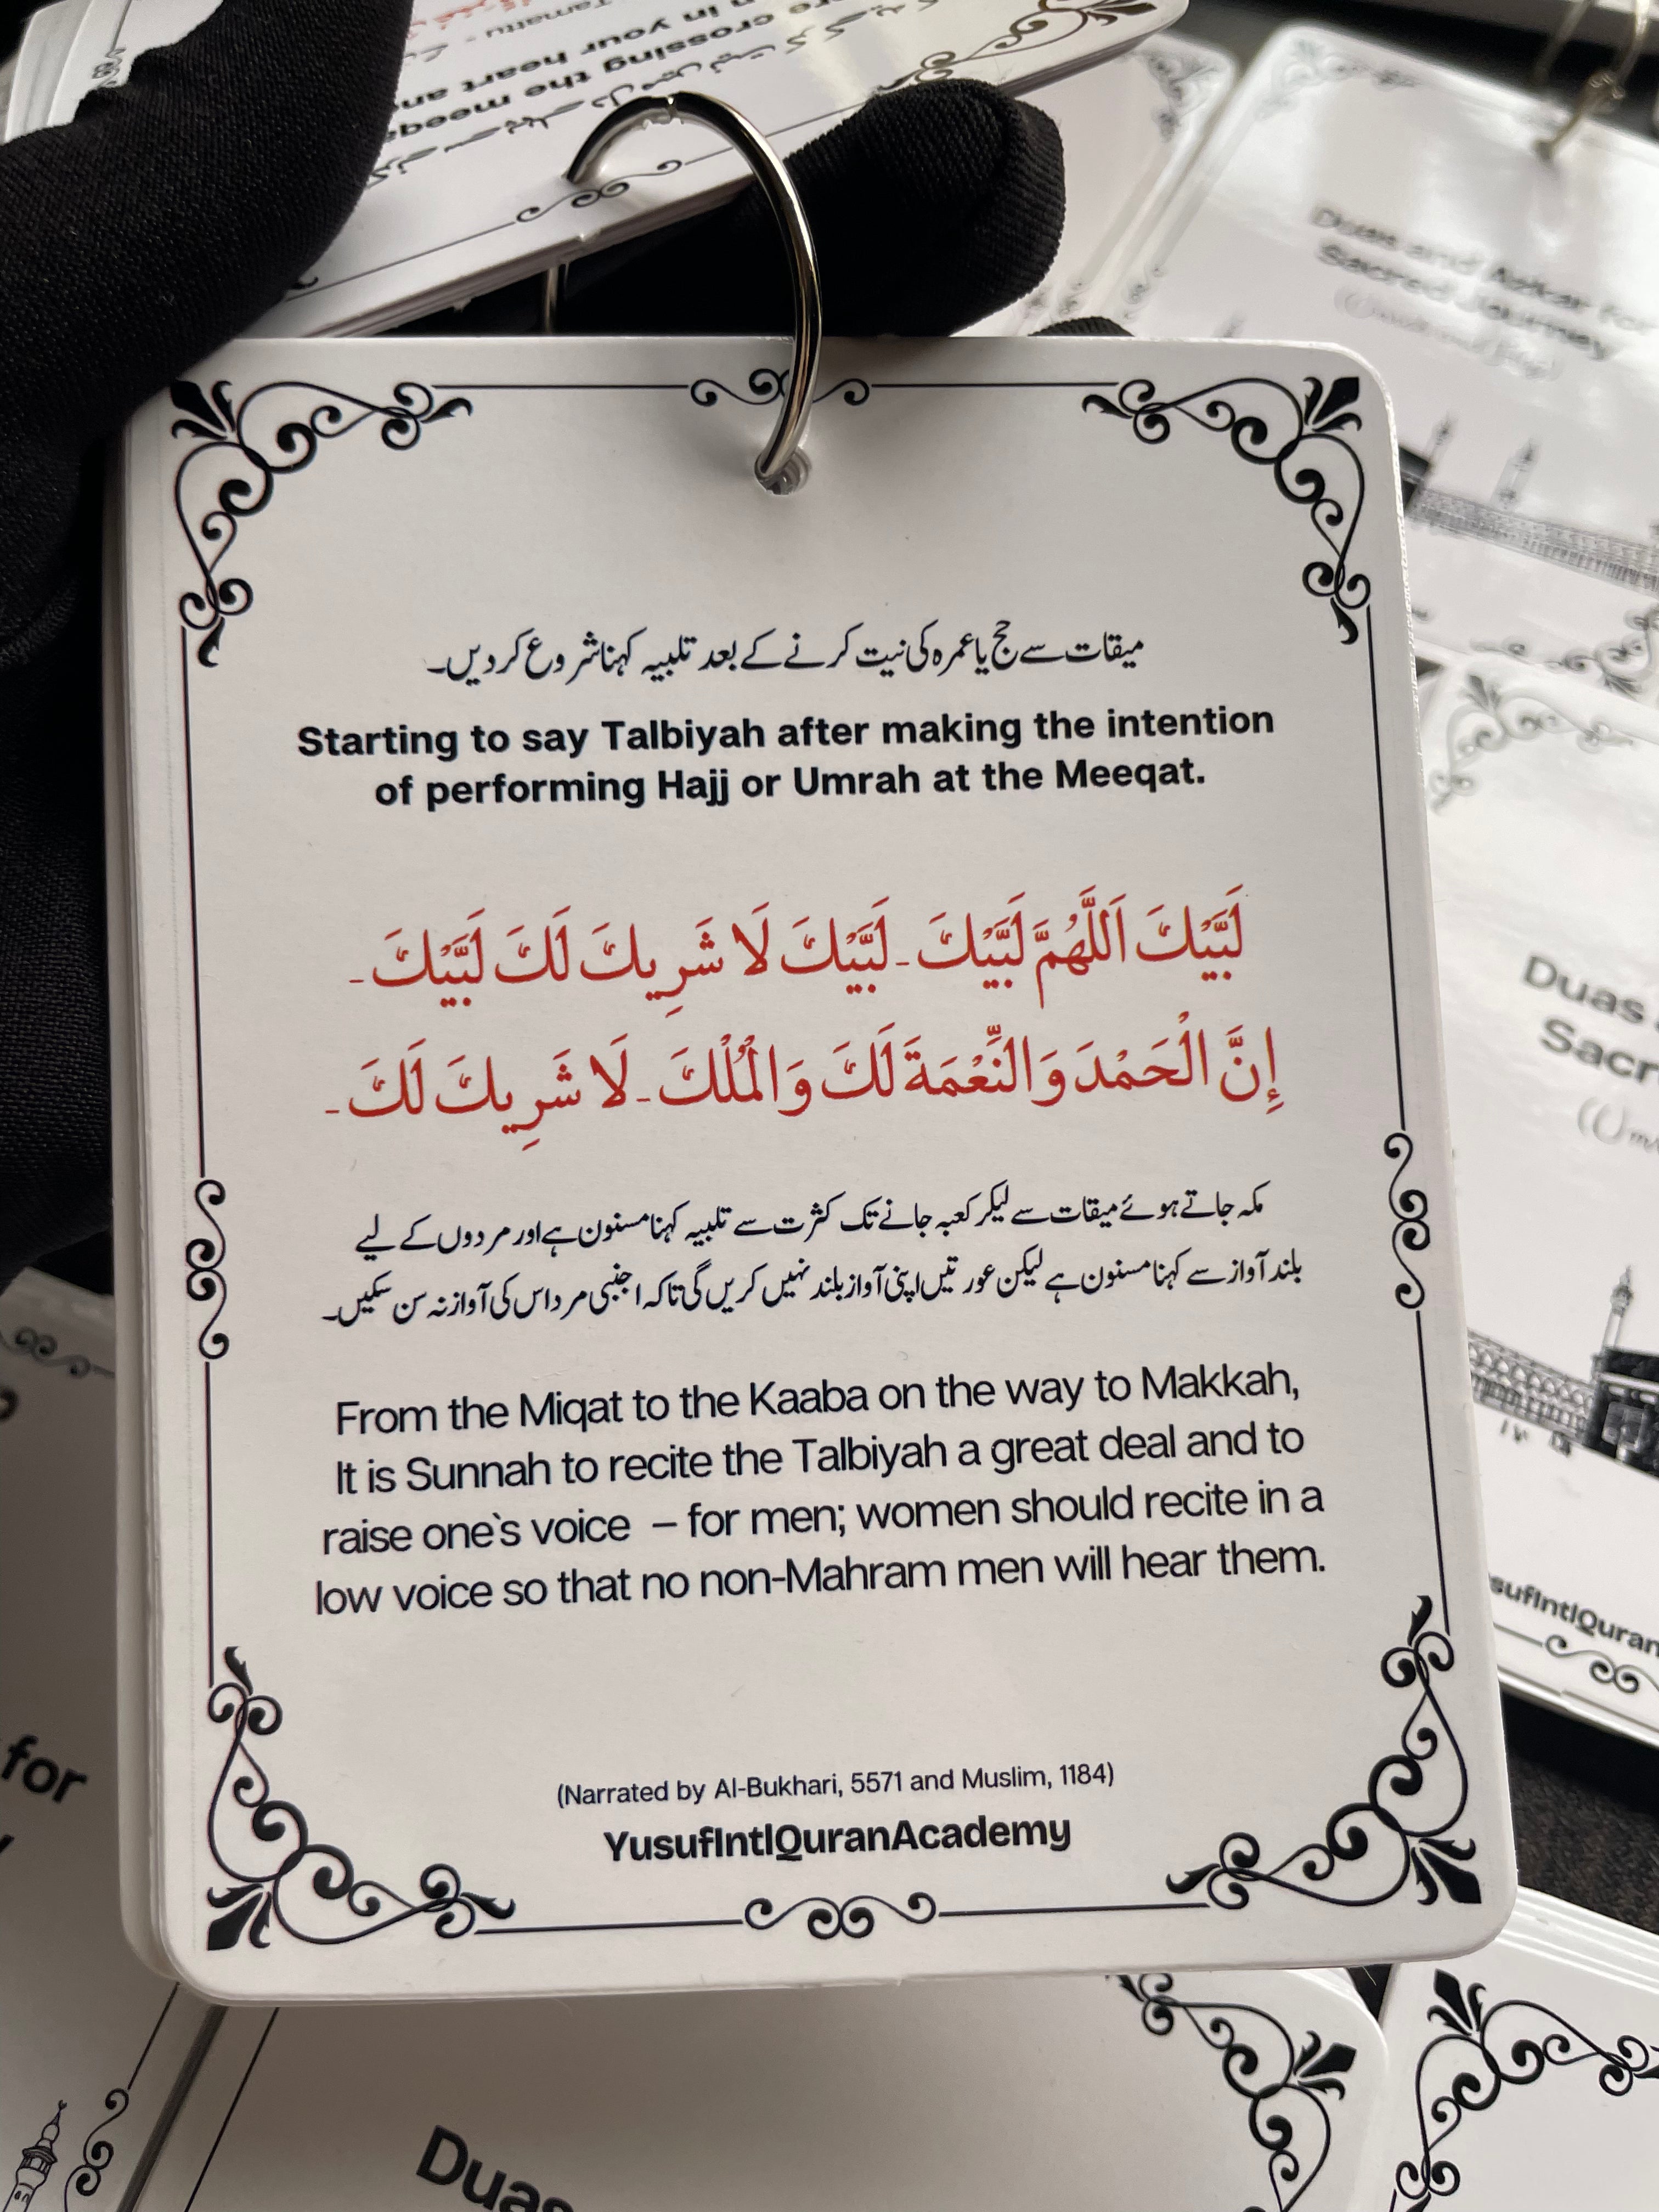 Tamattu -
in your heart and
re crossing the meeqa
Duas and Azkar for
Sacred Journey
میقات سے حج یا عمرہ کی نیت کرنے کے بعد تلبیہ کہنا شروع کر دیں۔
Starting to say Talbiyah after making the intention
of performing Hajj or Umrah at the Meeqat.
لَبَّيْكَ اَللّٰهُمَّ لَبَّيْكَ ۔ لَبَّيْكَ لَا شَرِيكَ لَكَ لَبَّيْكَ ۔
إِنَّ الْحَمْدَ وَالنِّعْمَةَ لَكَ وَالْمُلْكَ ۔ لَا شَرِيكَ لَكَ ۔
مکہ جاتے ہوئے میقات سے لیکر کعبہ جانے تک کثرت سے تلبیہ کہنا مسنون ہے اور مردوں کے لیے
بلند آواز سے کہنا مسنون ہے لیکن عورتیں اپنی آواز بلند نہیں کریں گی تاکہ اجنبی مرد اس کی آواز نہ سن سکیں۔
From the Miqat to the Kaaba on the way to Makkah,
It is Sunnah to recite the Talbiyah a great deal and to
raise one`s voice – for men; women should recite in a
low voice so that no non-Mahram men will hear them.
(Narrated by Al-Bukhari, 5571 and Muslim, 1184)
YusufIntlQuranAcademy
Duas
Sacr
(Um
sufIntlQuran
for
Duas